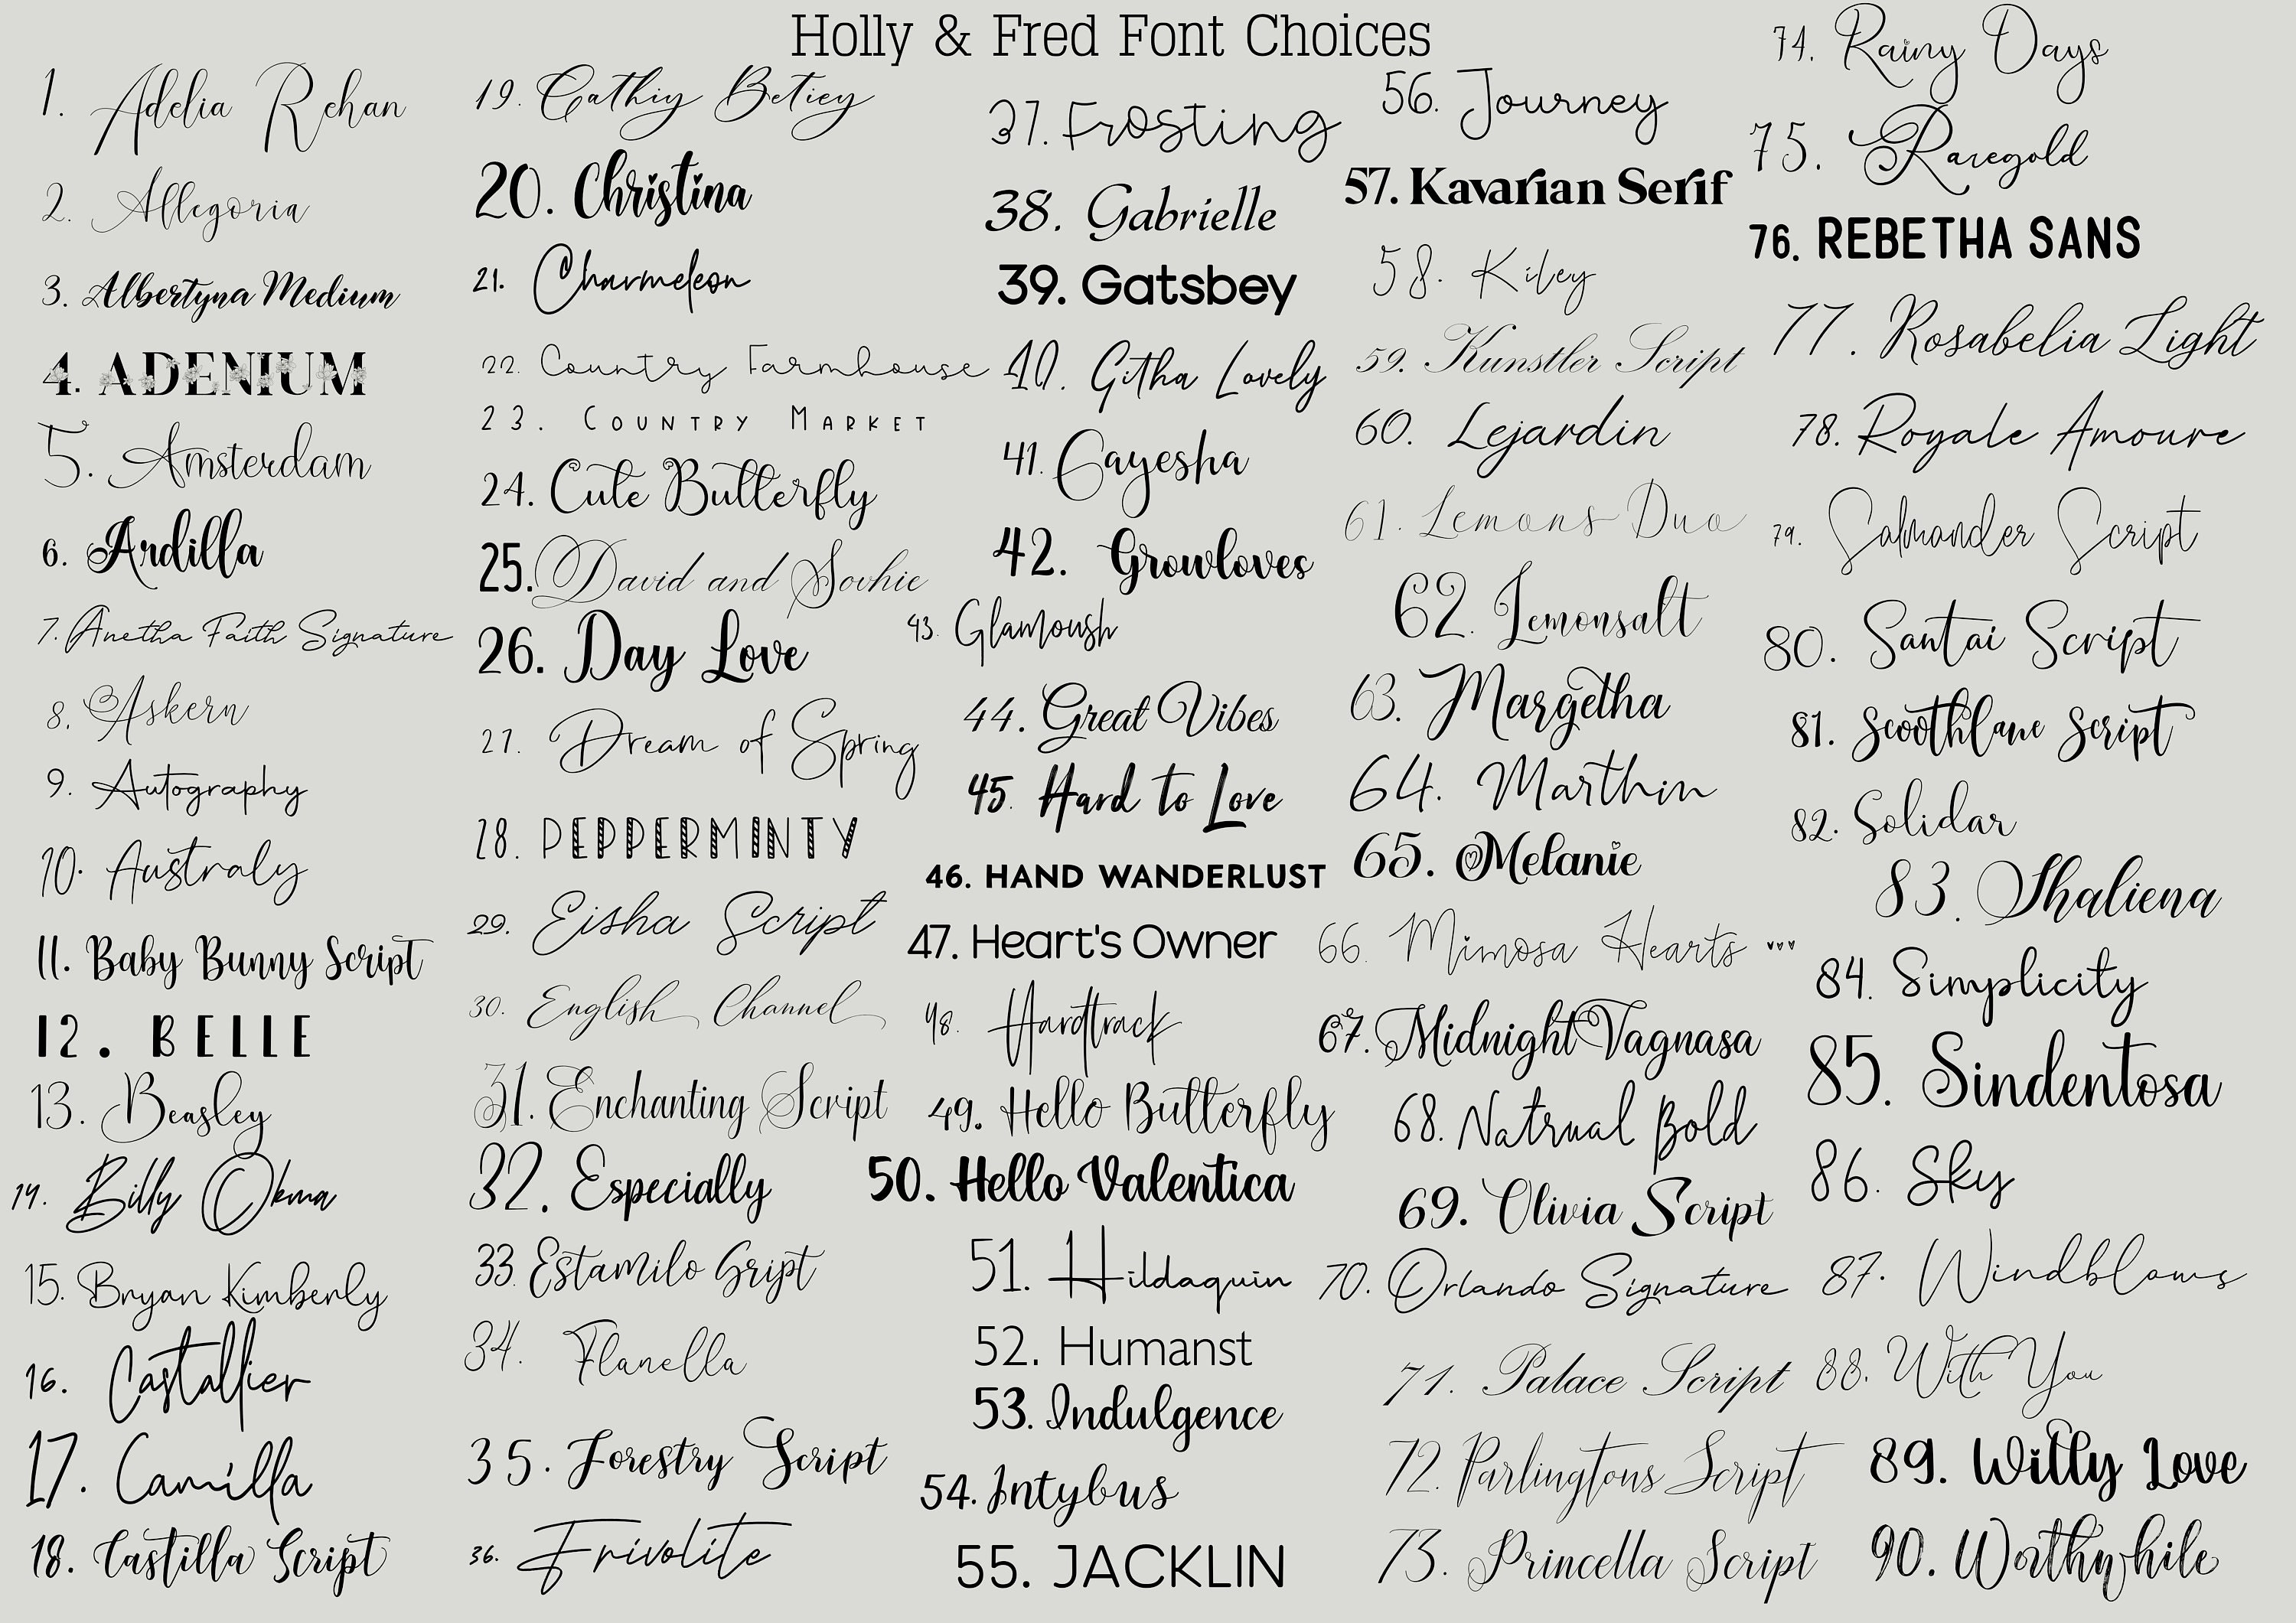 Holly & Fred Font Choices
1. Adelia Rehan
2. Allegoria
3. Albertyna Medium
4. ADENIUM
5. Amsterdam
6. Ardilla
7. Anetha Faith Signature
8. Askern
9. Autography
10. Australy
11. Baby Bunny Script
12. BELLE
13. Beasley
14. Billy Okma
15. Bryan Kimberly
16. Castallier
17. Camilla
18. Castilla Script
19. Cathiy Betiey
20. Christina
21. Charmeleon
22. Country Farmhouse
23. COUNTRY MARKET
24. Cute Butterfly
25. David and Sovhie
26. Day Love
27. Dream of Spring
28. PEPPERMINTY
29. Eisha Script
30. English Channel
31. Enchanting Script
32. Especially
33. Estamilo Sript
34. Flanella
35. Forestry Script
36. Frivolite
37. Frosting
38. Gabrielle
39. Gatsbey
40. Githa Lovely
41. Gayesha
42. Growloves
43. Glamoush
44. Great Vibes
45. Hard to Love
46. HAND WANDERLUST
47. Heart's Owner
48. Hardtrack
49. Hello Butterfly
50. Hello Valentica
51. Hildaquin
52. Humanst
53. Indulgence
54. Intybus
55. JACKLIN
56. Journey
57. Kavarian Serif
58. Kiley
59. Kunstler Script
60. Lejardin
61. Lemons Duo
62. Lemonsalt
63. Margetha
64. Marthin
65. Melanie
66. Mimosa Hearts ♥♥♥
67. Midnight Vagnasa
68. Natrual Bold
69. Olivia Script
70. Orlando Signature
71. Palace Script
72. Parlingtons Script
73. Princella Script
74. Rainy Days
75. Raregold
76. REBETHA SANS
77. Rosabelia Light
78. Royale Amoure
79. Salmander Script
80. Santai Script
81. Scoothlane Script
82. Solidar
83. Shaliena
84. Simplicity
85. Sindentosa
86. Sky
87. Windblows
88. With You
89. Willy Love
90. Worthywhile